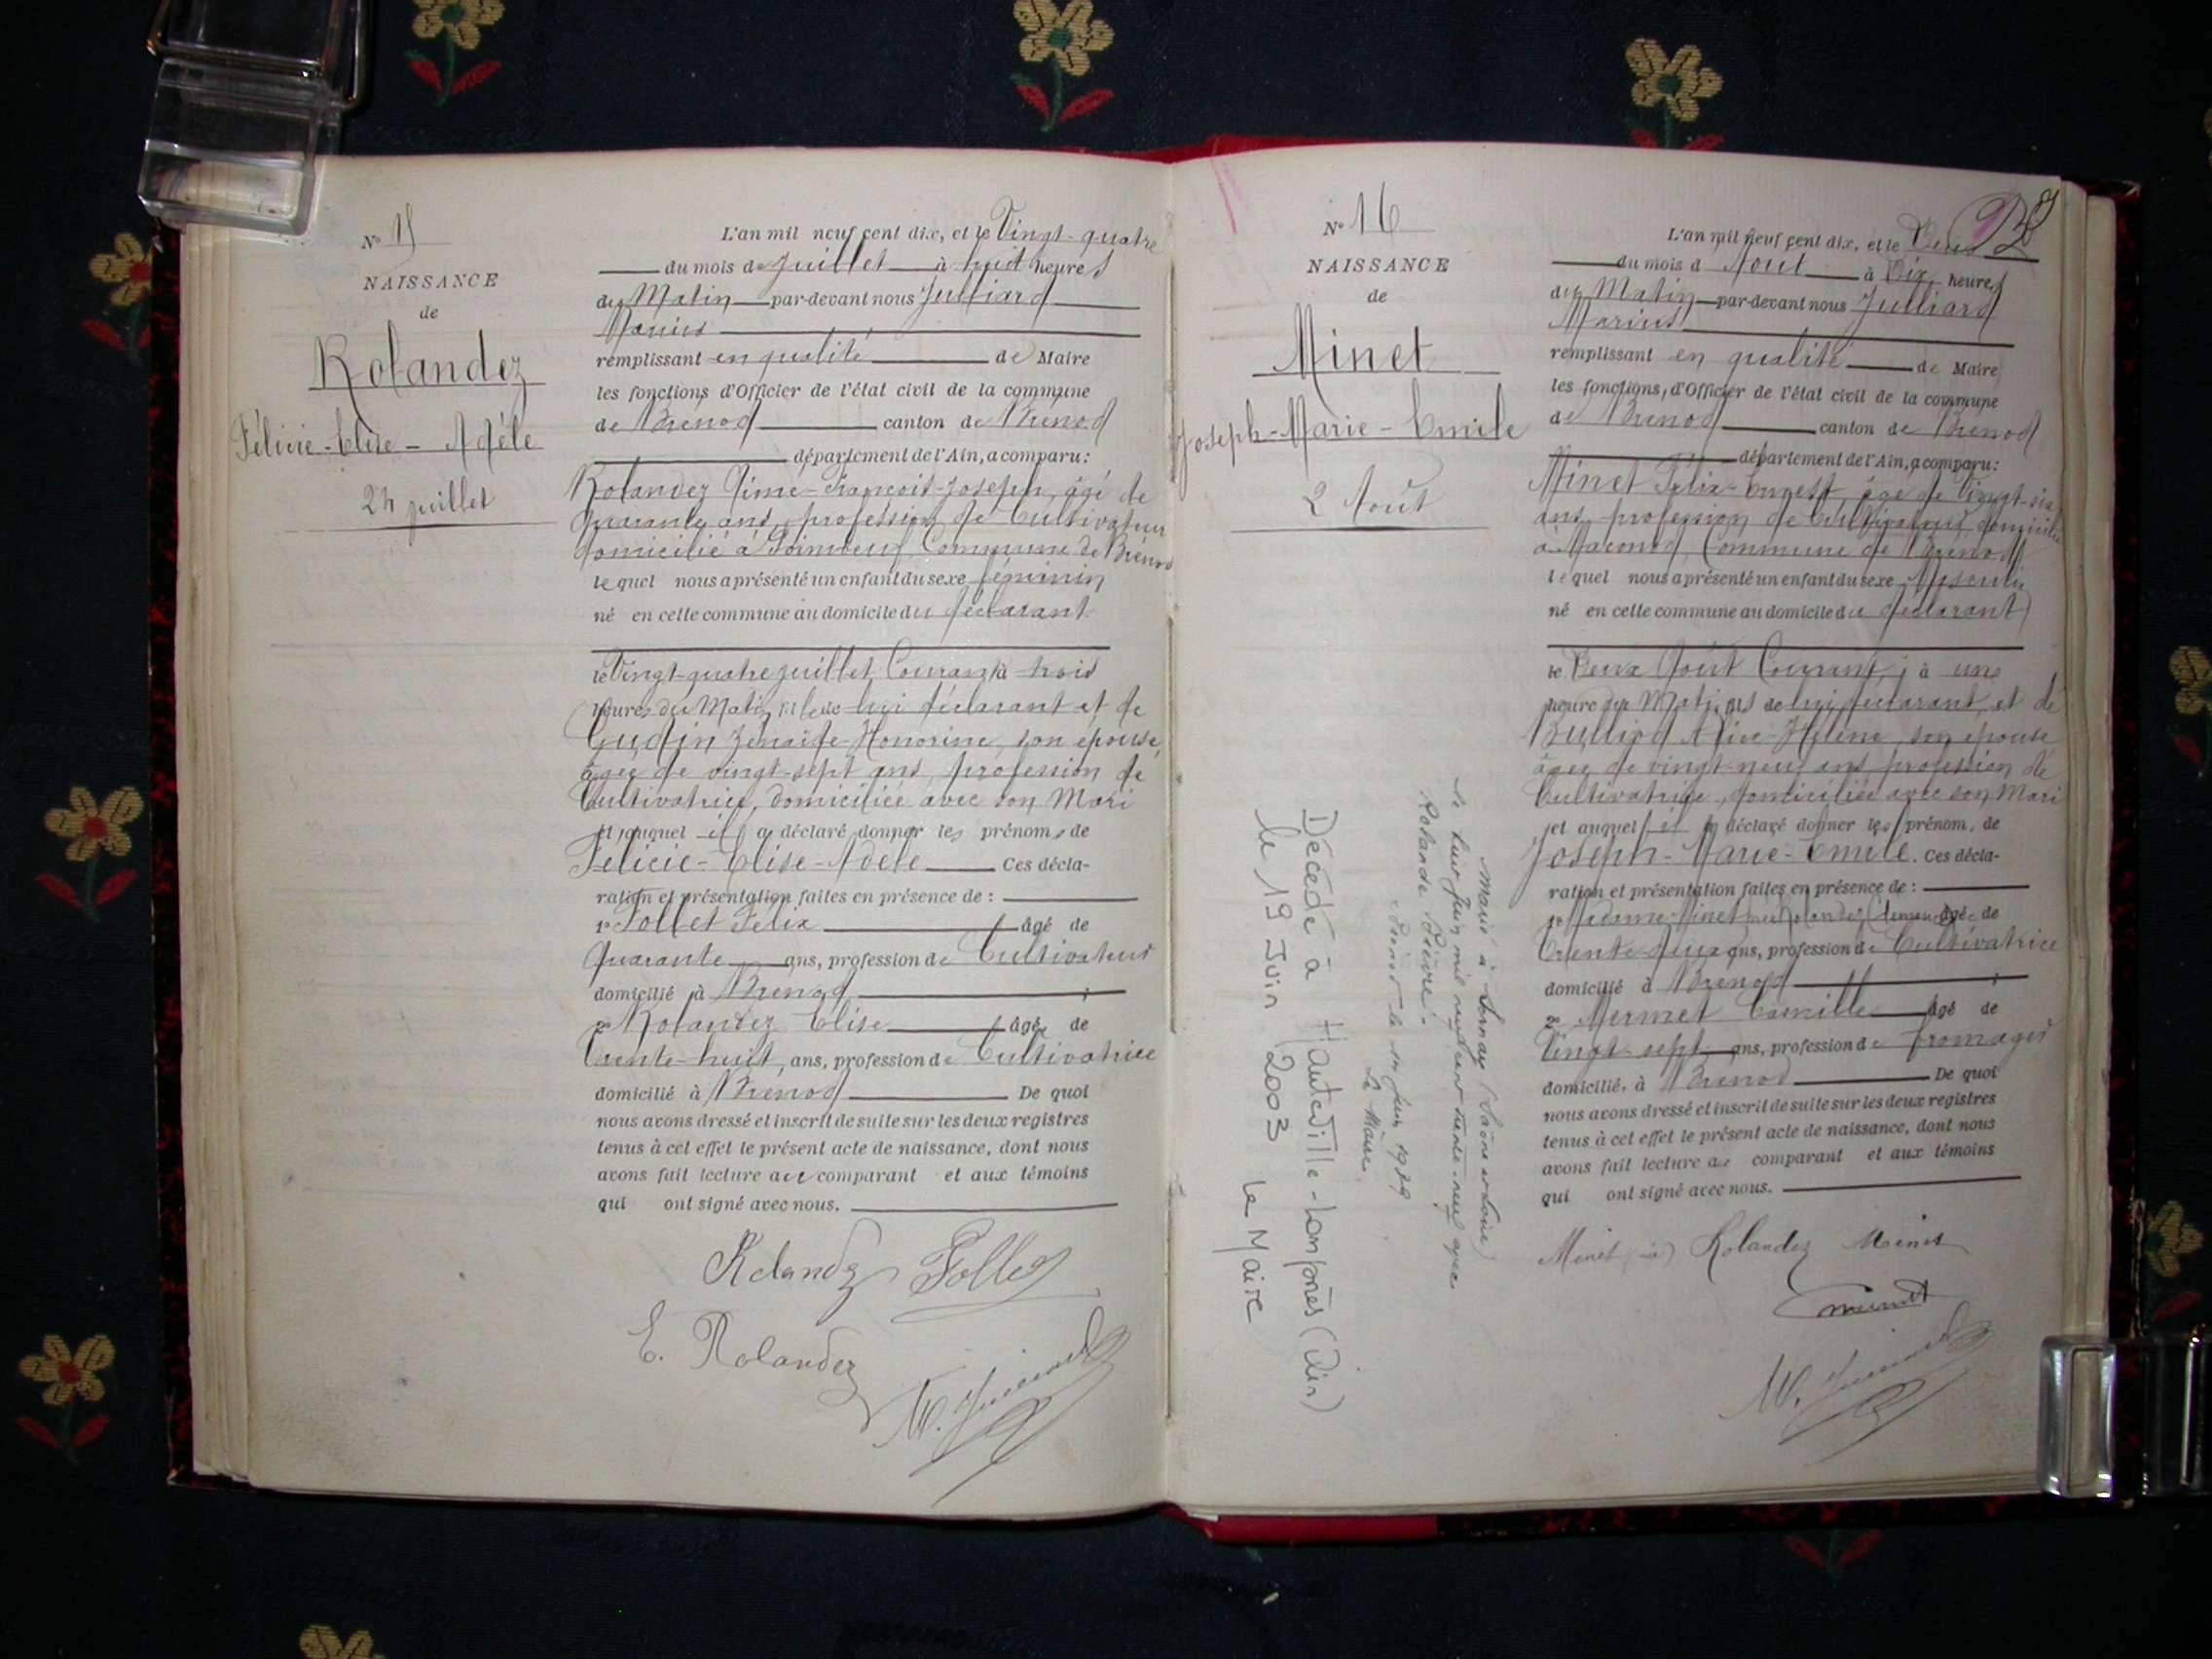 N° 15
NAISSANCE
de
Rolandez
Félicie-Elise-Adèle
24 juillet
L'an mil neuf cent dix, et le Vingt-quatre
du mois de Juillet à huit heures
du Matin par-devant nous Julliard
Marius
remplissant en qualité de Maire
les fonctions d'Officier de l'état civil de la commune
de Brénod canton de Brénod
département de l'Ain, a comparu:
Rolandez Aimé-François-Joseph, âgé de
quarante ans, profession de Cultivateur
domicilié à Commune de Brénod
lequel nous a présenté un enfant du sexe féminin
né en cette commune au domicile du déclarant
le Vingt-quatre juillet Courant à trois
heures du Matin de lui déclarant et de
Gudin Zénaïde-Honorine, son épouse,
âgée de vingt-sept ans, profession de
Cultivatrice, domiciliée avec son Mari
et auquel il a déclaré donner les prénoms de
Félicie-Elise-Adèle Ces décla-
ration et présentation faites en présence de :
1° Tollet Félix âgé de
Quarante ans, profession de Cultivateur
domicilié à Brénod
2° Rolandez Elise âgée de
Trente-huit, ans, profession de Cultivatrice
domicilié à Brénod De quoi
nous avons dressé et inscrit de suite sur les deux registres
tenus à cet effet le présent acte de naissance, dont nous
avons fait lecture au comparant et aux témoins
qui ont signé avec nous.
Rolandez Tollet
E. Rolandez
N° 16
NAISSANCE
de
Minet
Joseph-Marie-Emile
2 Août
Marié à (Saône et Loire)
le huit Juin mil neuf cent trente-neuf avec
Juin 1939
Le Maire,
Décédé à Hauteville-Lompnes (Ain)
le 19 Juin 2003 Le Maire
L'an mil neuf cent dix, et le Deux
du mois d Aout à Dix heures
du Matin par-devant nous Julliard
Marius
remplissant en qualité de Maire
les fonctions, d'Officier de l'état civil de la commune
de Brénod canton de Brénod
département de l'Ain, a comparu:
Minet Félix-Ernest, âgé de Vingt-six
ans, profession de Cultivateur domicilié
à Macconod Commune de Brénod
lequel nous a présenté un enfant du sexe Masculin
né en cette commune au domicile du déclarant
le Deux Août Courant, à une
heure du Matin de lui déclarant et de
Bulliod Alice-Hélène, son épouse
âgée de vingt-neuf ans profession de
Cultivatrice, domiciliée avec son Mari
et auquel il a déclaré donner les prénom, de
Joseph-Marie-Emile. Ces décla-
ration et présentation faites en présence de :
1° Madame Minet née Rolandez Clémence âgé de
Trente-deux ans, profession de Cultivatrice
domicilié à Brénod
2° Mermet Camille âgé de
Vingt-sept ans, profession de fromager
domicilié, à Brénod De quoi
nous avons dressé et inscrit de suite sur les deux registres
tenus à cet effet le présent acte de naissance, dont nous
avons fait lecture au comparant et aux témoins
qui ont signé avec nous.
Minet Rolandez Minet
Mermet